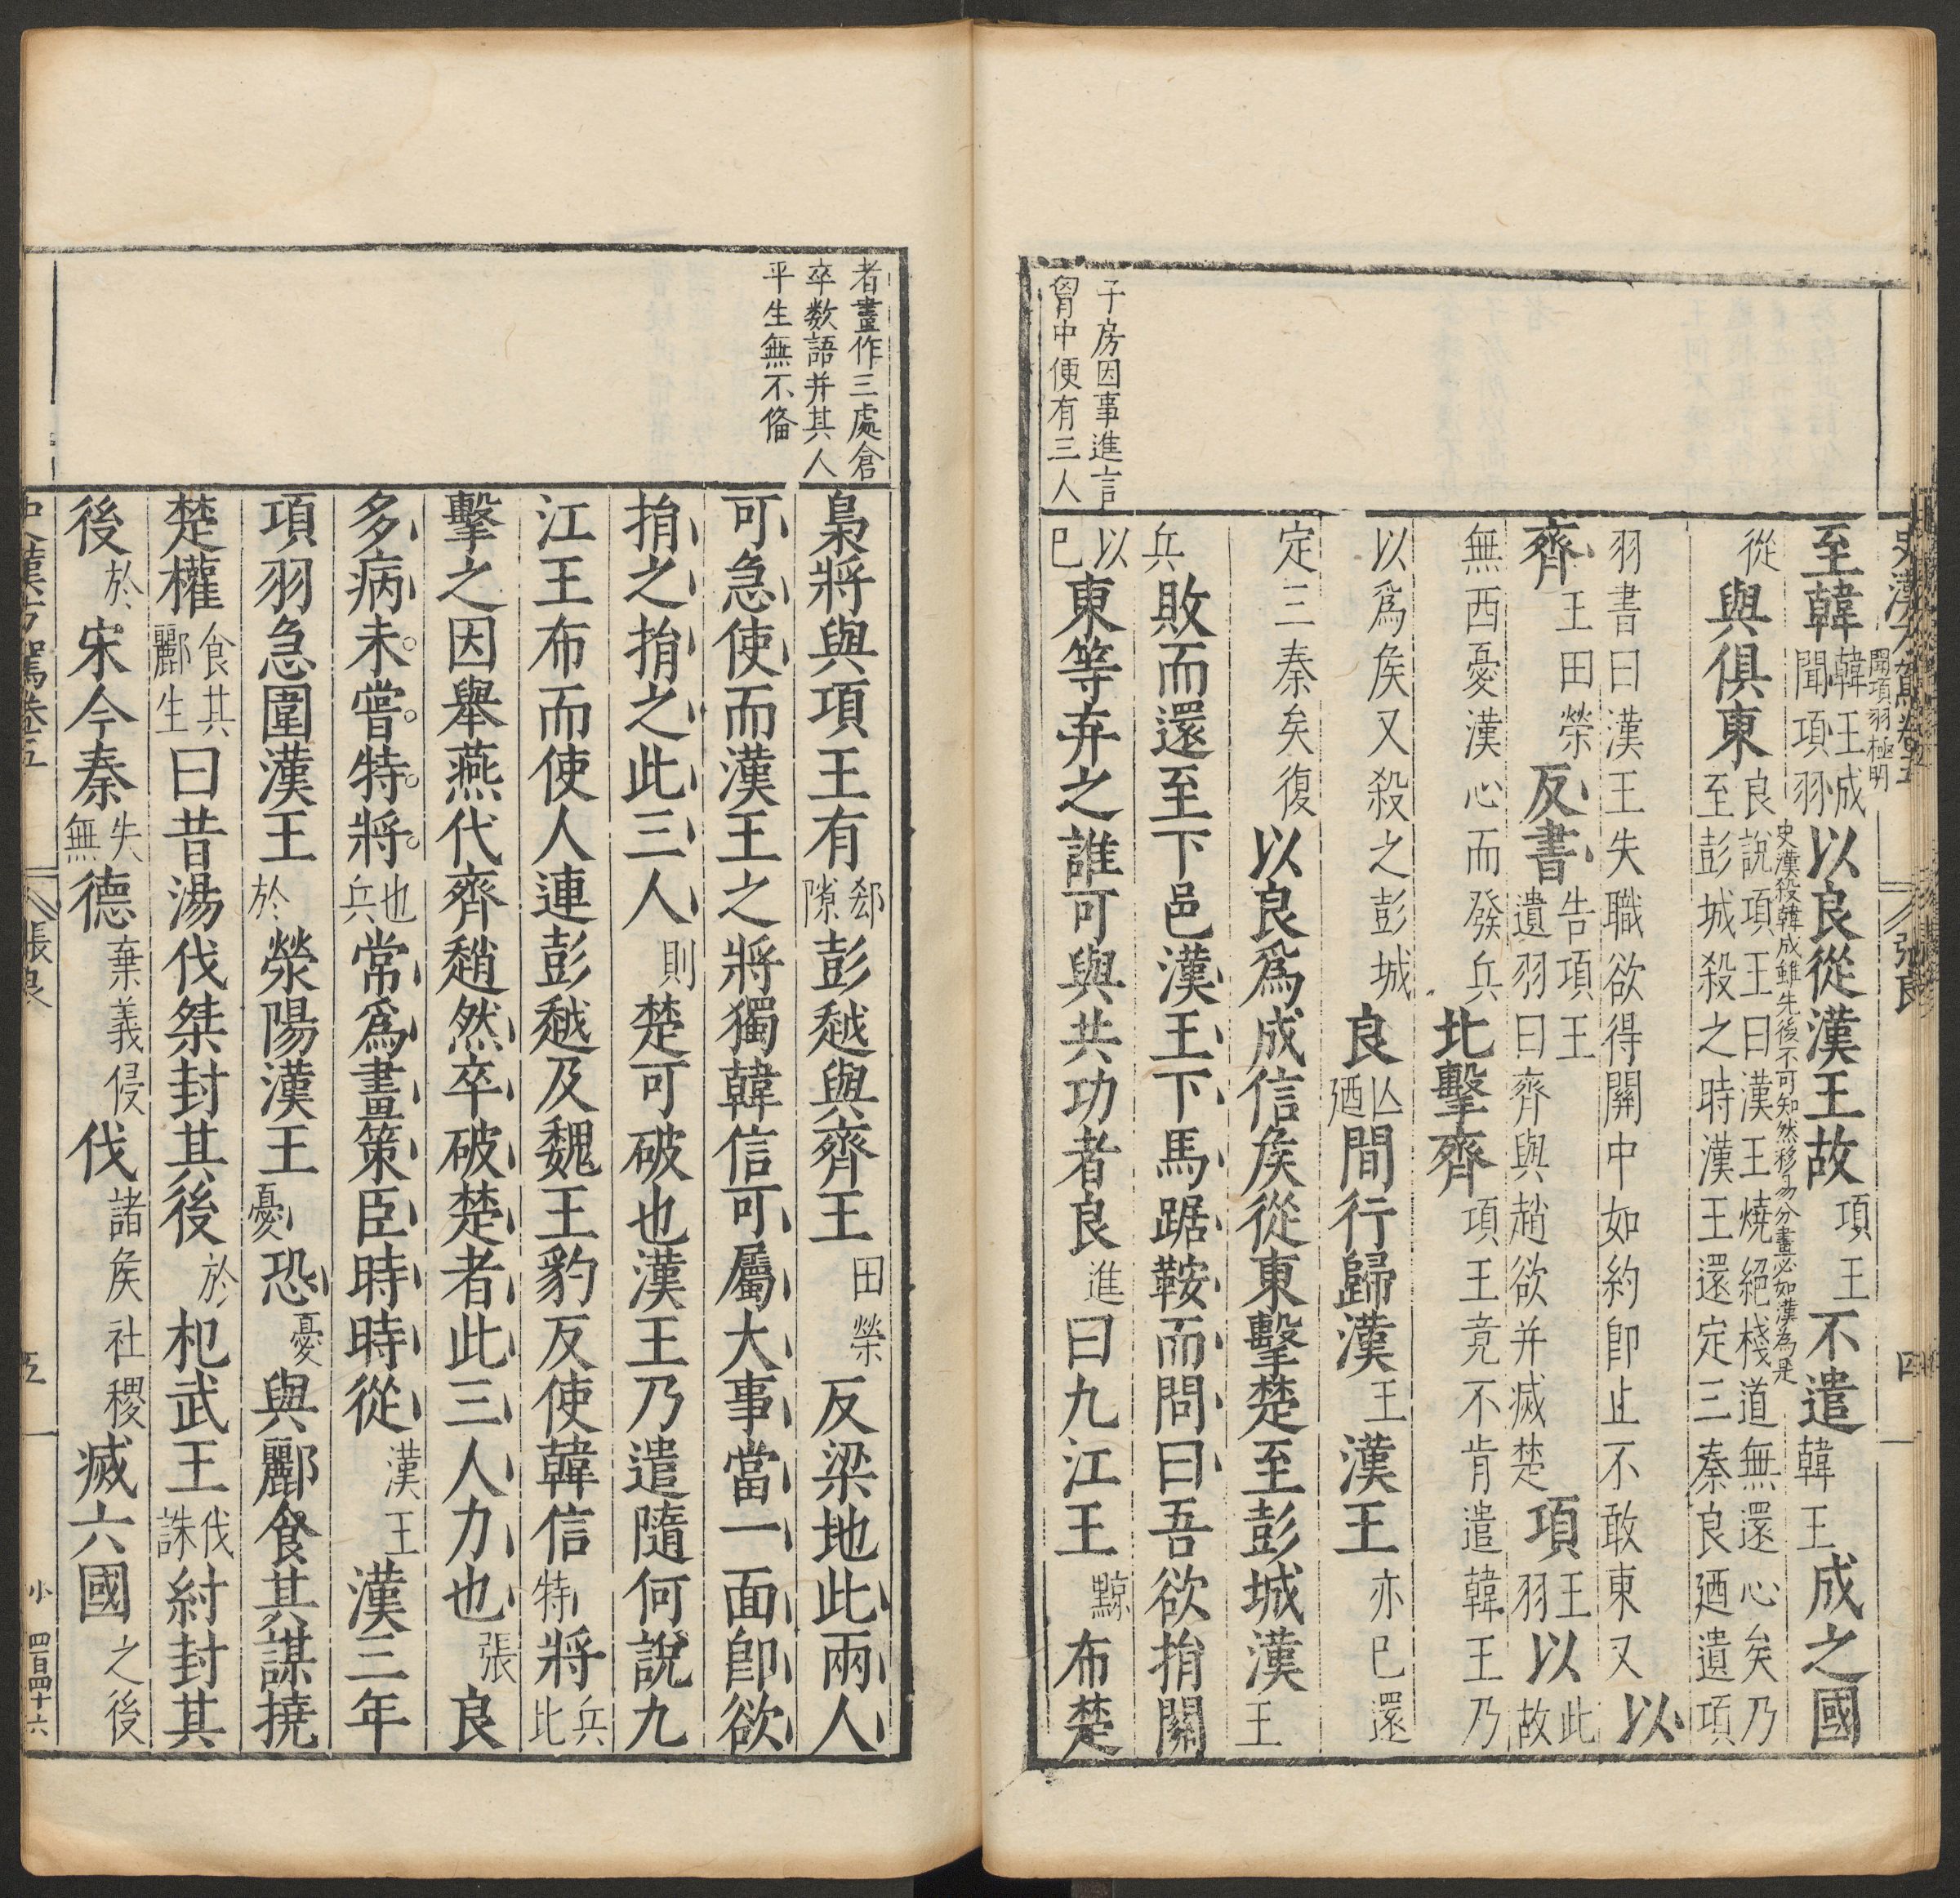 史漢方駕卷五 張良 四
聞項羽極明
至韓韓王成聞項羽以良從漢王故項王不遣韓王成之國
史漢殺韓成雖先後不可知然移易分畫必如漢為是
從與俱東良說項王曰漢王燒絕棧道無還心矣乃至彭城殺之時漢王還定三秦良廼遺項
羽書曰漢王失職欲得關中如約卽止不敢東又以
齊王田榮反書告項王遺羽曰齊與趙欲并滅楚項王羽以此故
無西憂漢心而發兵北擊齊項王竟不肯遣韓王乃
以爲矦又殺之彭城良亾廼間行歸漢王漢王亦已還
定三秦矣復以良爲成信矦從東擊楚至彭城漢王
兵敗而還至下邑漢王下馬踞鞍而問曰吾欲捐關
以已東等弃之誰可與共功者良進曰九江王黥布楚
子房因事進言
胷中便有三人
者畫作三處倉
卒数語并其人
平生無不俻
梟將與項王有郄隙彭越與齊王田榮反梁地此兩人
可急使而漢王之將獨韓信可屬大事當一面卽欲
捐之捐之此三人則楚可破也漢王乃遣隨何說九
江王布而使人連彭越及魏王豹反使韓信特將兵比
擊之因舉燕代齊趙然卒破楚者此三人力也張良
多病未嘗特將也兵常爲畫策臣時時從漢王漢三年
項羽急圍漢王於滎陽漢王憂恐憂與酈食其謀撓
楚權食其酈生曰昔湯伐桀封其後於杞武王伐誅紂封其
後於宋今秦失無德棄義侵伐諸矦社稷滅六國之後
史漢方駕卷五 張良 五 小 四百四十六